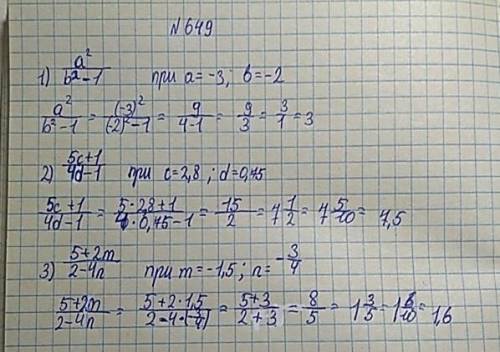 №649
1) a²/(b²-1) при a=-3; b=-2
a²/(b²-1) = (-3)²/((-2)²-1) = 9/(4-1) = 9/3 = 3/1 = 3
2) (5c+1)/(4d-1) при c=2,8; d=0,75
(5c+1)/(4d-1) = (5·2,8+1)/(4·0,75-1) = 15/2 = 7 1/2 = 7 5/10 = 7,5
3) (5+2m)/(2-4n) при m=-1,5; n=-3/4
(5+2m)/(2-4n) = (5+2·1,5)/ = (5+3)/(2+3) = 8/5 = 1 3/5 = 1 6/10 = 1,6